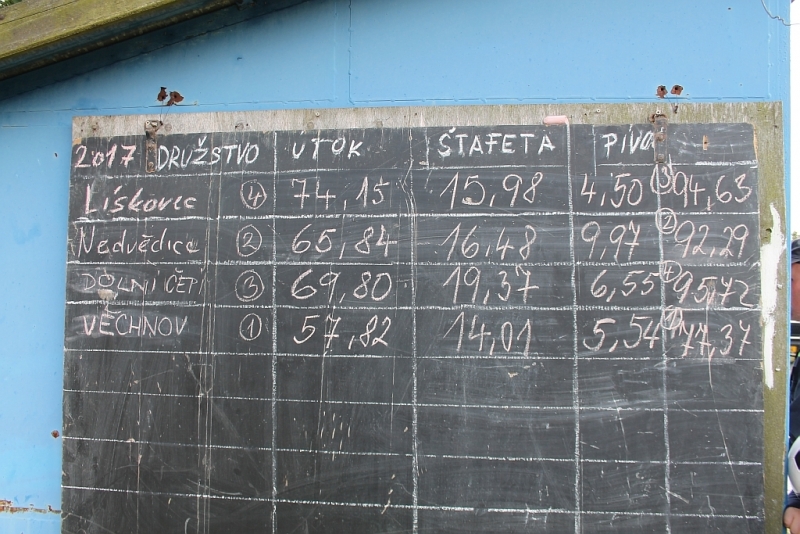 2017 DRUŽSTVO ÚTOK ŠTAFETA PIVO
Lískovec ④ 74,15 15,98 4,50 ③ 94,63
Nedvědice ② 65,84 16,48 9,97 ② 92,29
DOLNÍ ČEPÍ ③ 69,80 19,37 6,55 ④ 95,72
VĚCHNOV ① 57,82 14,01 5,54 ① 77,37